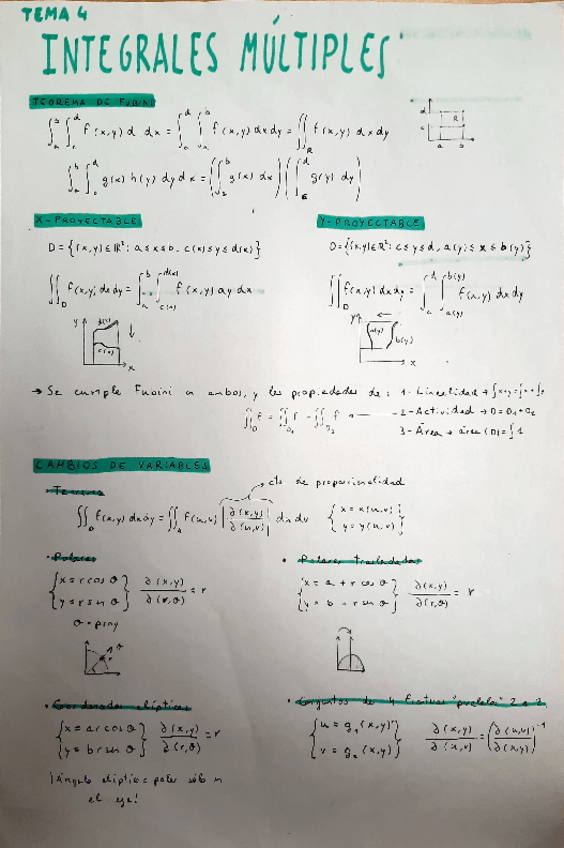 TEMA 4
INTEGRALES MÚLTIPLES
TEOREMA DE FUBINI
∫_a^b ∫_c^d f(x,y) d dx = ∫_c^d ∫_a^b f(x,y) dx dy = ∬_R f(x,y) dx dy
d
c
R
a b
∫_a^b ∫_c^d g(x) h(y) dy dx = (∫_a^b g(x) dx)(∫_c^d g(y) dy)
X-PROYECTABLE
D = {(x,y)∈ℝ²: a≤x≤b, c(x)≤y≤d(x)}
∬_D f(x,y) dx dy = ∫_a^b ∫_{c(x)}^{d(x)} f(x,y) dy dx
y
d(x)
c(x)
x
Y-PROYECTABLE
D={(x,y)∈ℝ²: c≤y≤d, a(y)≤x≤b(y)}
∬_D f(x,y) dx dy = ∫_c^d ∫_{a(y)}^{b(y)} f(x,y) dx dy
y
a(y)
b(y)
x
→ Se cumple Fubini en ambos, y las propiedades de: 1- Linealidad
∬_D f = ∬_{D₁} f + ∬_{D₂} f ← 2- Actividad → D = D₁+D₂
3- Área → área (D) = ∫ 1
CAMBIOS DE VARIABLES
• Teorema
cte de proporcionalidad
∬_D f(x,y) dx dy = ∬ f(u,v) |∂(x,y)/∂(u,v)| du dv {x = x(u,v) y = y(u,v)}
• Polares
{x = r cos θ y = r sen θ} ∂(x,y)/∂(r,θ) = r
θ
r
• Polares trasladadas
{x = a + r cos θ y = b + r sen θ} ∂(x,y)/∂(r,θ) = r
• Coordenadas elípticas
{x = a r cos θ y = b r sen θ} ∂(x,y)/∂(r,θ) = r
¡Ángulo elíptico polar sólo en
el eje!
• Conjuntos de 4 fronteras "paralelas" 2 a 2
{u = g₁(x,y) v = g₂(x,y)} ∂(x,y)/∂(u,v) = (∂(u,v)/∂(x,y))⁻¹